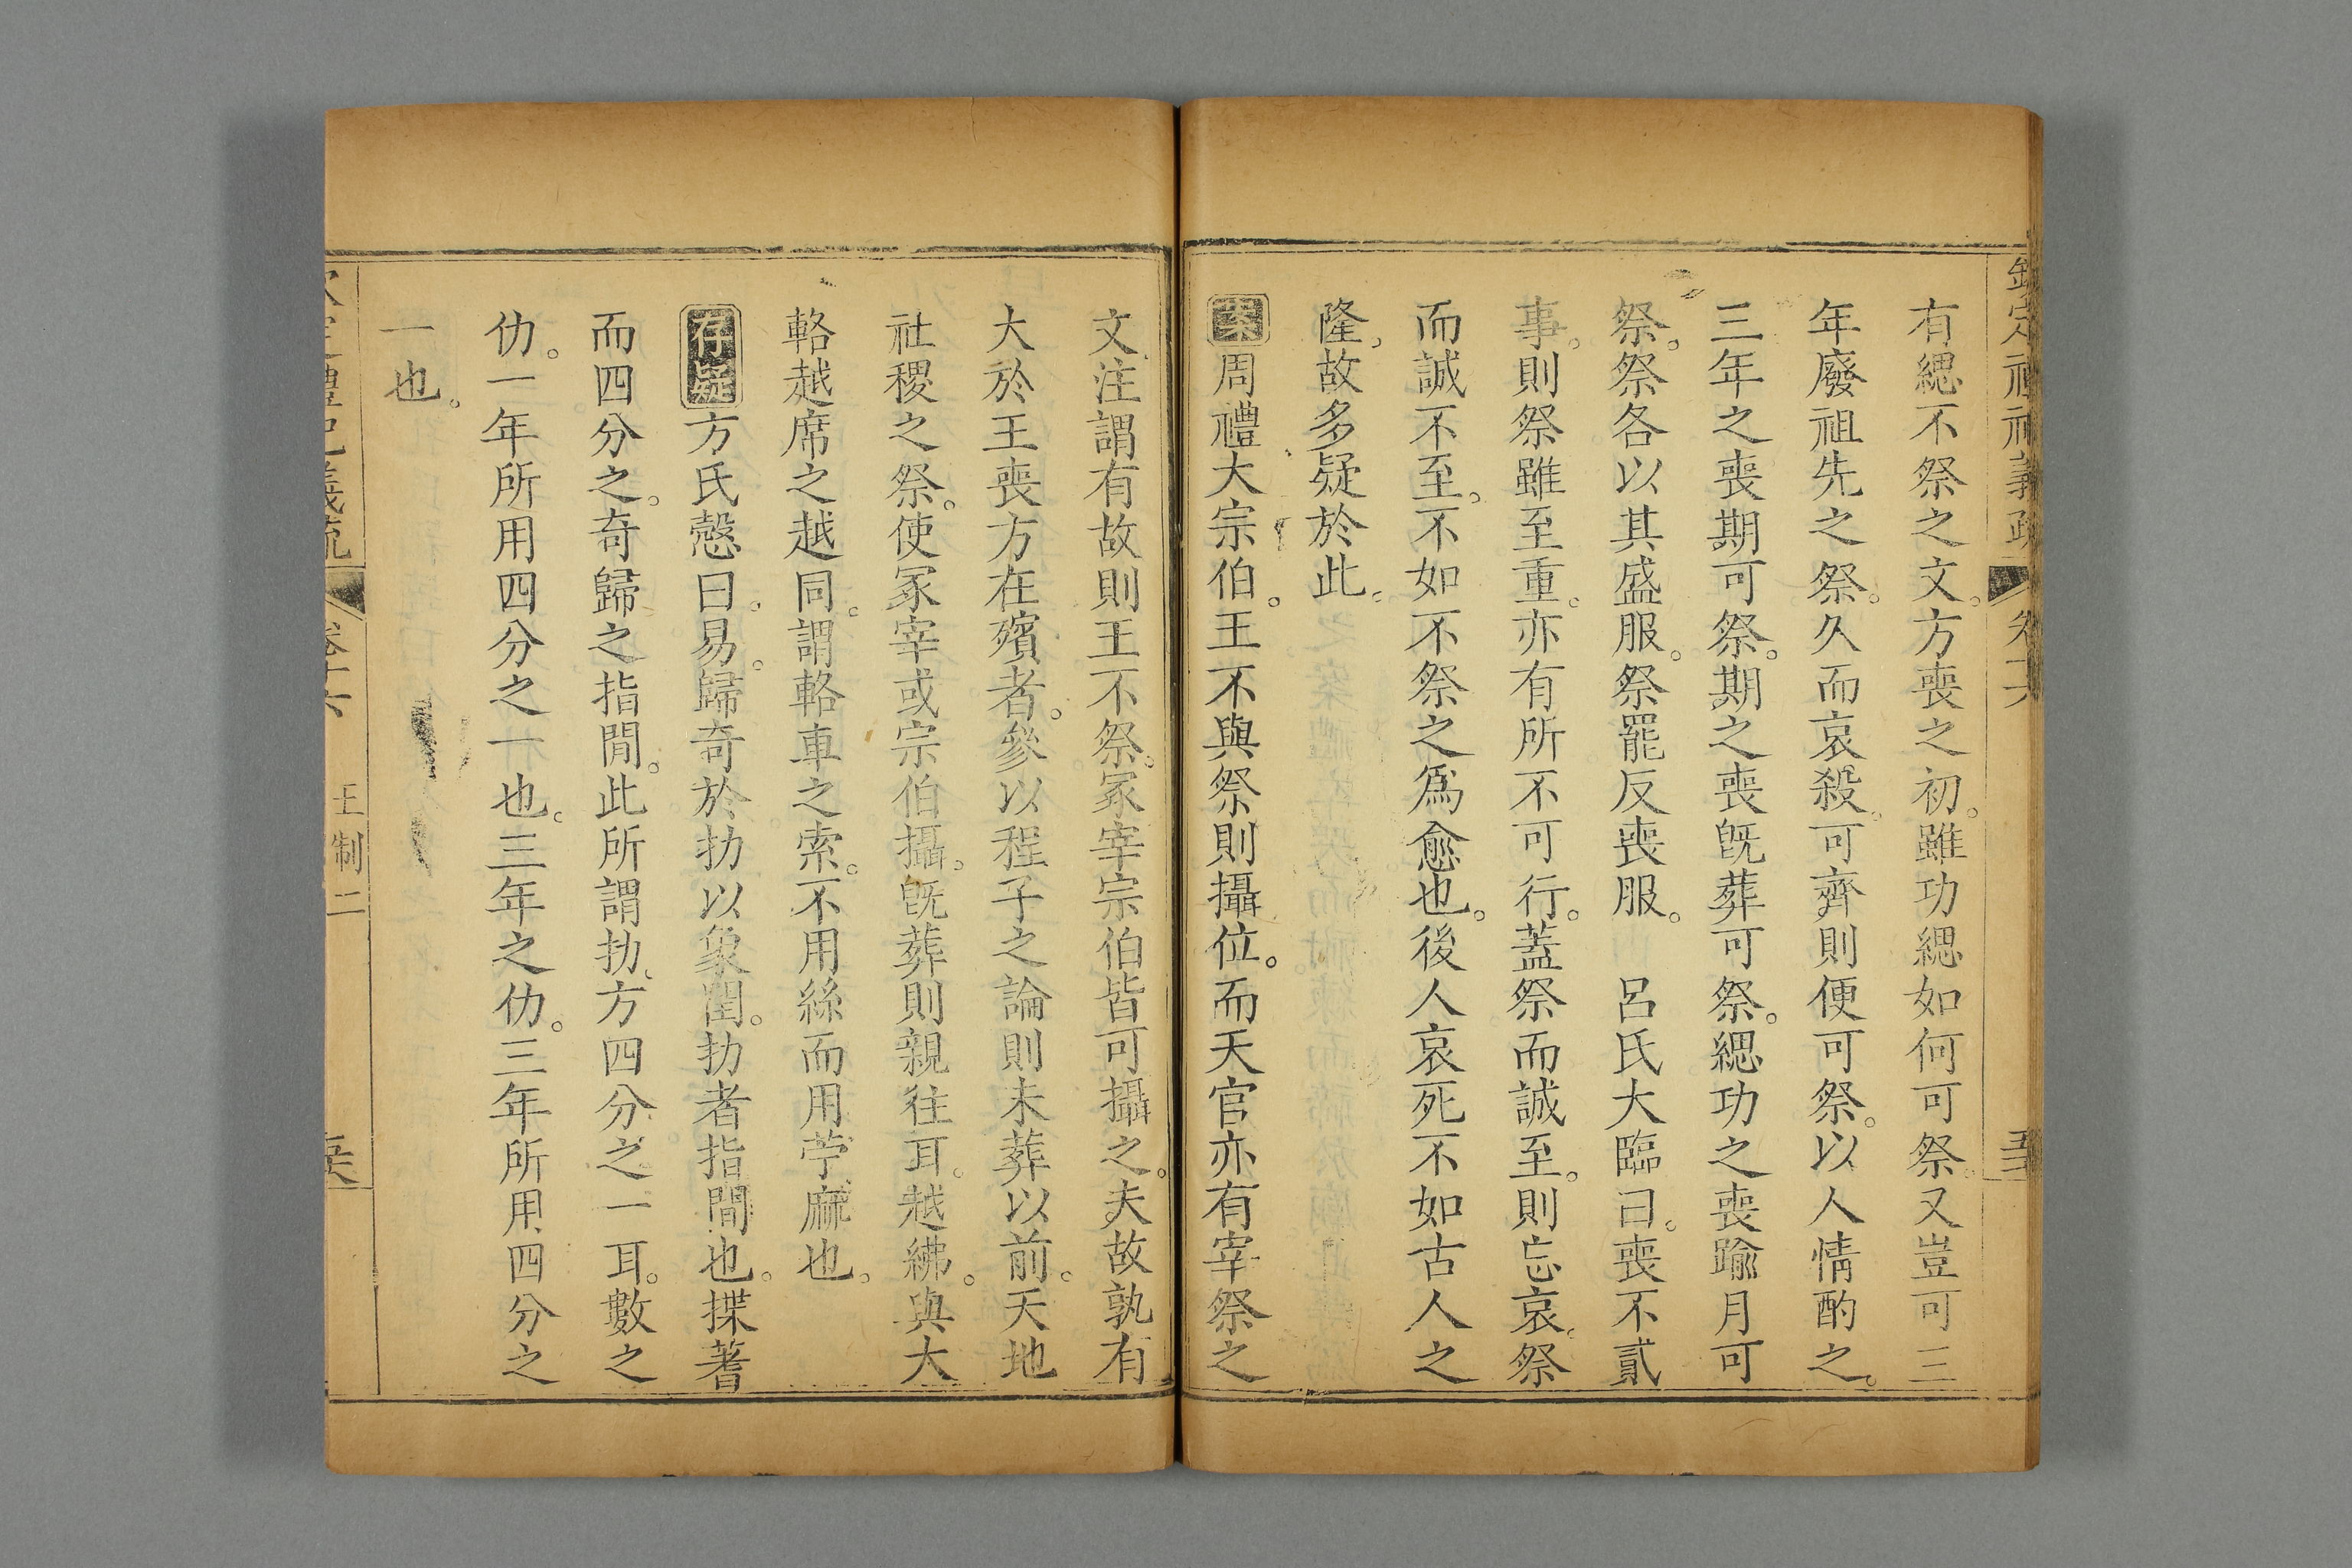 欽定禮記義疏 卷十六
有緦不祭之文。方喪之初。雖功緦如何可祭。又豈可三
年廢祖先之祭。久而哀殺。可齊則便可祭。以人情酌之。
三年之喪期可祭。期之喪旣葬可祭。緦功之喪踰月可
祭。祭各以其盛服。祭罷反喪服。 呂氏大臨曰。喪不貳
事。則祭雖至重。亦有所不可行。蓋祭而誠至。則忘哀。祭
而誠不至。不如不祭之爲愈也。後人哀死不如古人之
隆。故多疑於此。
案周禮大宗伯。王不與祭則攝位。而天官亦有宰祭之
文注謂有故則王不祭。冢宰宗伯皆可攝之。夫故孰有
大於王喪方在殯者。參以程子之論則未葬以前。天地
社稷之祭。使冢宰或宗伯攝。旣葬則親往耳。越紼。與大
輅越席之越同。謂輅車之索。不用絲而用苧麻也。
存疑方氏慤曰。易。歸奇於扐以象閏。扐者指間也。揲蓍
而四分之。奇歸之指閒。此所謂扐、方四分之一耳。數之
仂。一年所用四分之一也。三年之仂。三年所用四分之
一也。
欽定禮記義疏 卷十六 王制二